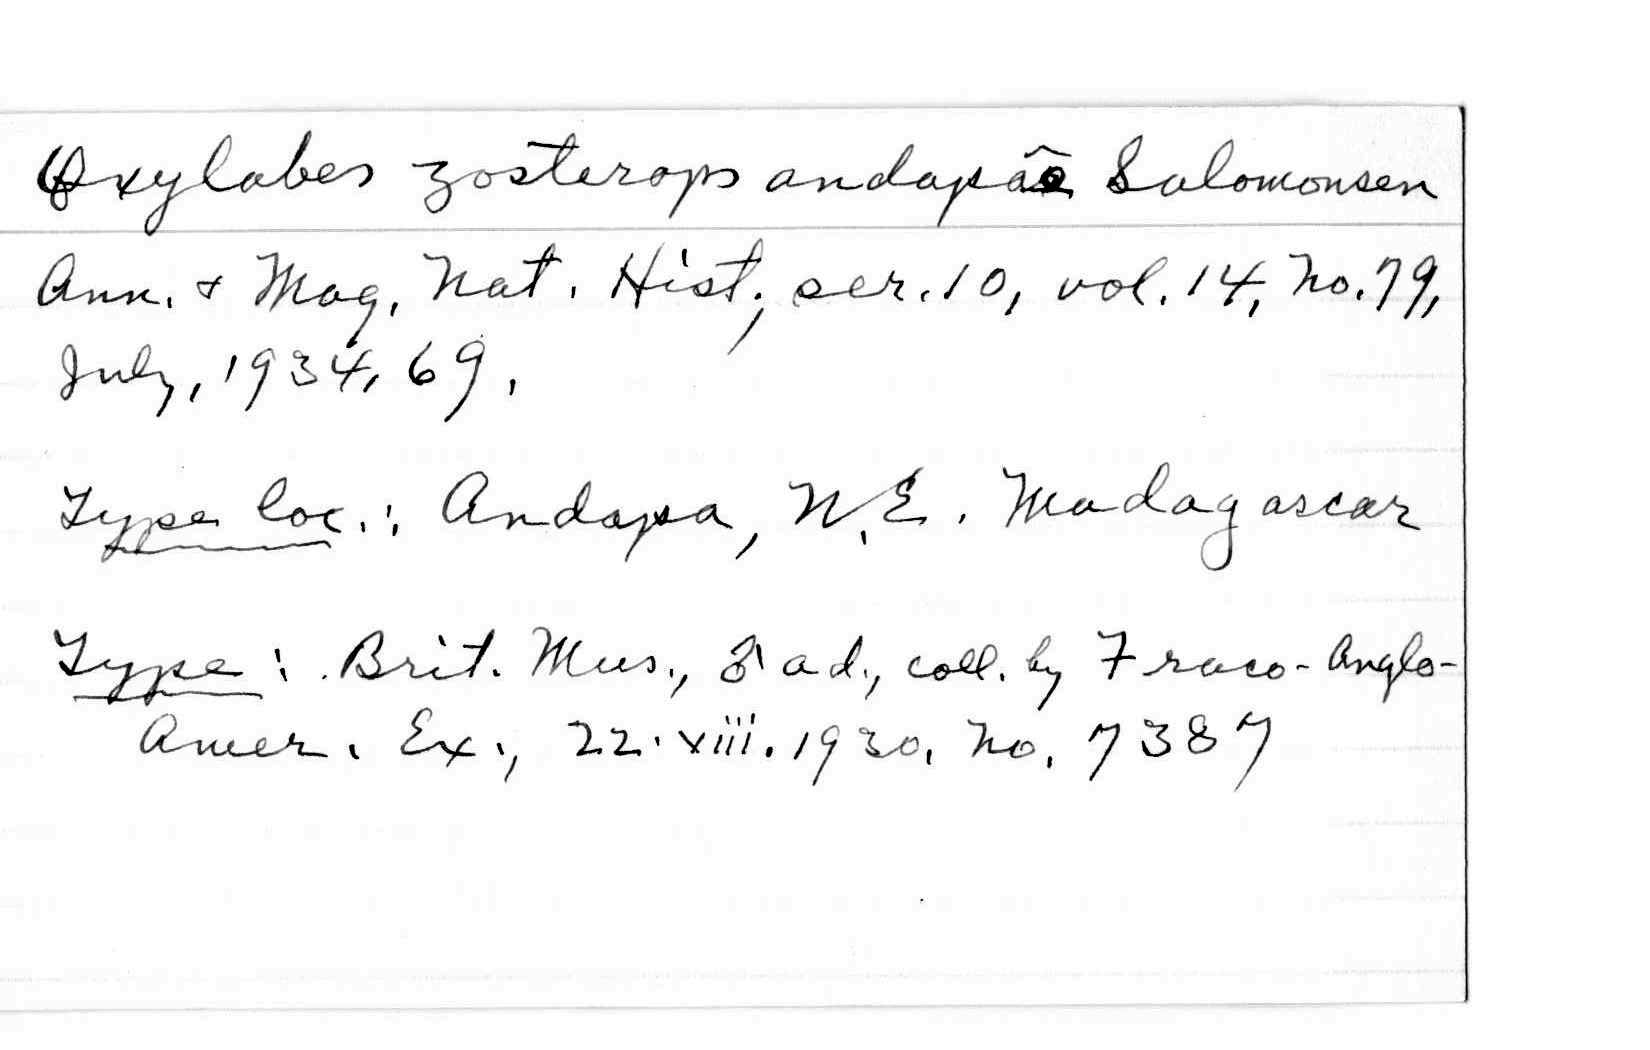 Oxylabes zosterops andapae Salomonsen
Ann. & Mag. Nat. Hist., ser. 10, vol. 14, no. 79,
July, 1934, 69.
Type loc.: Andapa, N.E. Madagascar
Type: Brit. Mus., ♂ ad., coll. by Fraco-Anglo-
Amer. Ex., 22.xiii.1930. no. 7387